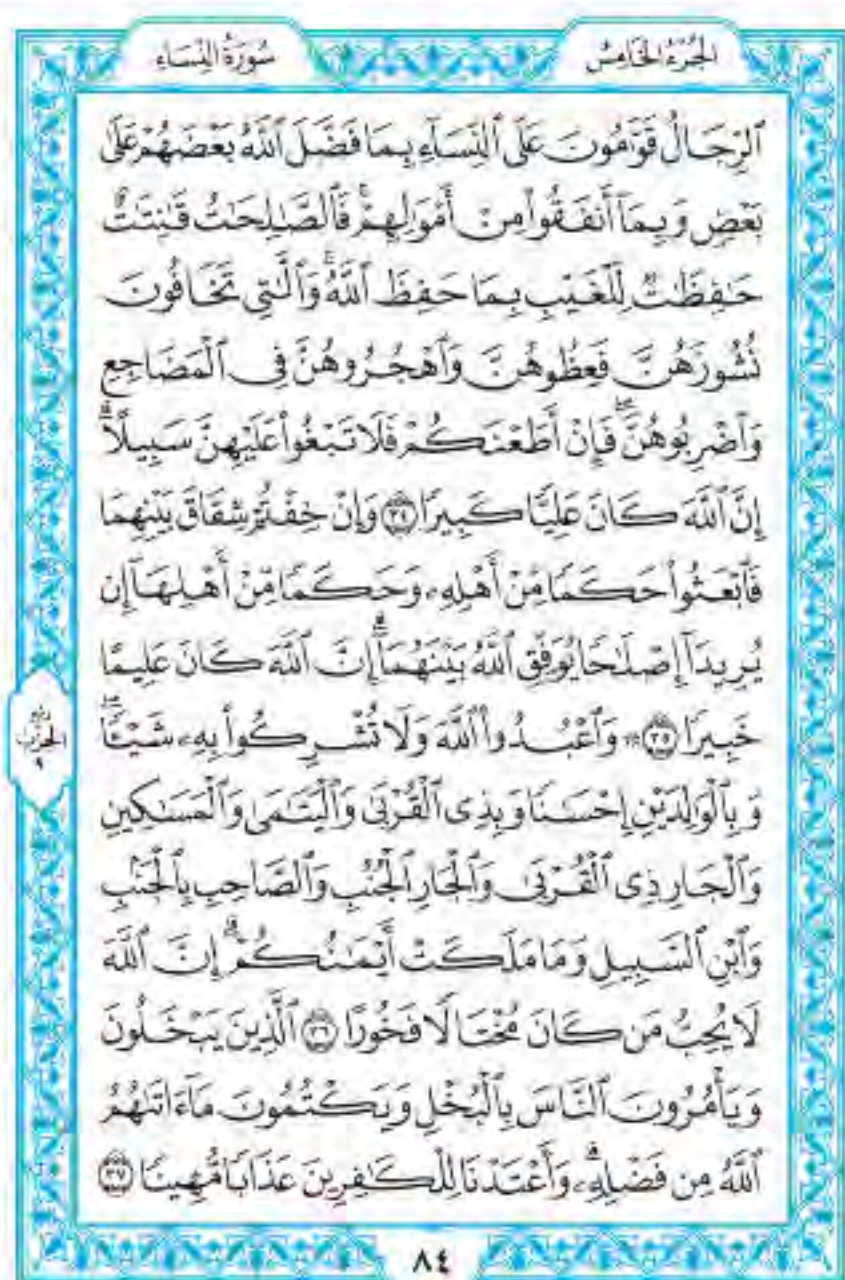 الجُزْءُ الخَامِسُ
سُورَةُ النِّسَاءِ
ٱلرِّجَالُ قَوَّٰمُونَ عَلَى ٱلنِّسَآءِ بِمَا فَضَّلَ ٱللَّهُ بَعْضَهُمْ عَلَىٰ
بَعْضٍ وَبِمَآ أَنفَقُوا۟ مِنْ أَمْوَٰلِهِمْ ۚ فَٱلصَّٰلِحَٰتُ قَٰنِتَٰتٌ
حَٰفِظَٰتٌ لِّلْغَيْبِ بِمَا حَفِظَ ٱللَّهُ ۚ وَٱلَّٰتِى تَخَافُونَ
نُشُوزَهُنَّ فَعِظُوهُنَّ وَٱهْجُرُوهُنَّ فِى ٱلْمَضَاجِعِ
وَٱضْرِبُوهُنَّ ۖ فَإِنْ أَطَعْنَكُمْ فَلَا تَبْغُوا۟ عَلَيْهِنَّ سَبِيلًا ۗ
إِنَّ ٱللَّهَ كَانَ عَلِيًّا كَبِيرًا ٣٤ وَإِنْ خِفْتُمْ شِقَاقَ بَيْنِهِمَا
فَٱبْعَثُوا۟ حَكَمًا مِّنْ أَهْلِهِۦ وَحَكَمًا مِّنْ أَهْلِهَآ إِن
يُرِيدَآ إِصْلَٰحًا يُوَفِّقِ ٱللَّهُ بَيْنَهُمَآ ۗ إِنَّ ٱللَّهَ كَانَ عَلِيمًا
خَبِيرًا ٣٥ ۞ وَٱعْبُدُوا۟ ٱللَّهَ وَلَا تُشْرِكُوا۟ بِهِۦ شَيْـًٔا ۖ
وَبِٱلْوَٰلِدَيْنِ إِحْسَٰنًا وَبِذِى ٱلْقُرْبَىٰ وَٱلْيَتَٰمَىٰ وَٱلْمَسَٰكِينِ
وَٱلْجَارِ ذِى ٱلْقُرْبَىٰ وَٱلْجَارِ ٱلْجُنُبِ وَٱلصَّاحِبِ بِٱلْجَنۢبِ
وَٱبْنِ ٱلسَّبِيلِ وَمَا مَلَكَتْ أَيْمَٰنُكُمْ ۗ إِنَّ ٱللَّهَ
لَا يُحِبُّ مَن كَانَ مُخْتَالًا فَخُورًا ٣٦ ٱلَّذِينَ يَبْخَلُونَ
وَيَأْمُرُونَ ٱلنَّاسَ بِٱلْبُخْلِ وَيَكْتُمُونَ مَآ ءَاتَىٰهُمُ
ٱللَّهُ مِن فَضْلِهِۦ ۗ وَأَعْتَدْنَا لِلْكَٰفِرِينَ عَذَابًا مُّهِينًا ٣٧
رُبْعُ
الحِزْبِ
٩
٨٤